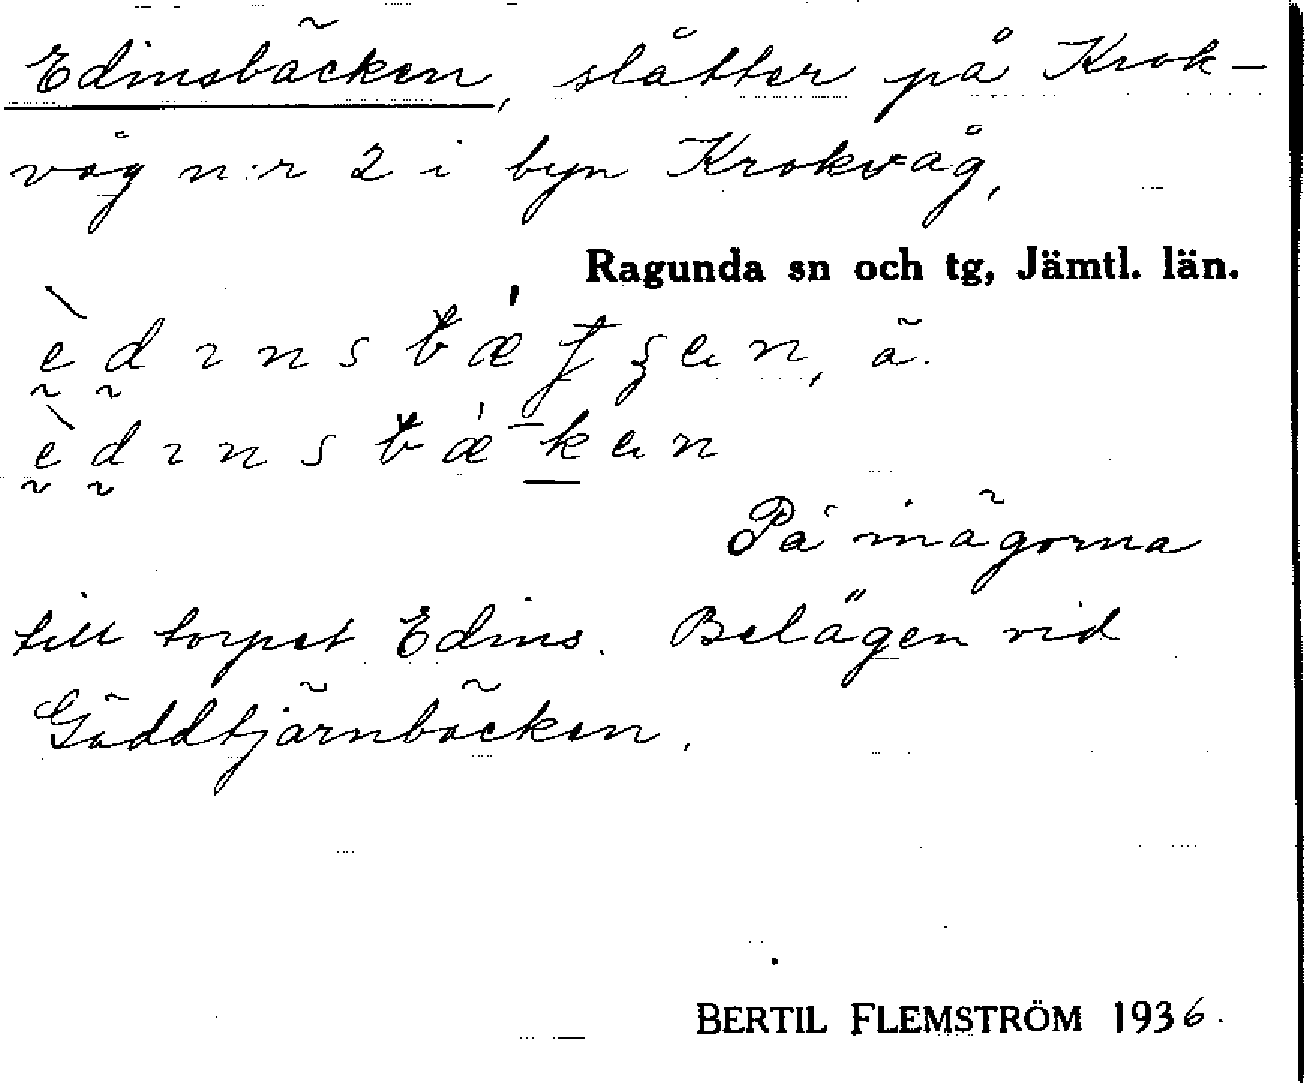 Edinsbäcken, slåtter på Krok-
våg n:r 2 i byn Krokvåg,
Ragunda sn och tg, Jämtl. län.
På inägorna
till torpet Edins. Belägen vid
Gäddtjärnbäcken.
BERTIL FLEMSTRÖM 1936.